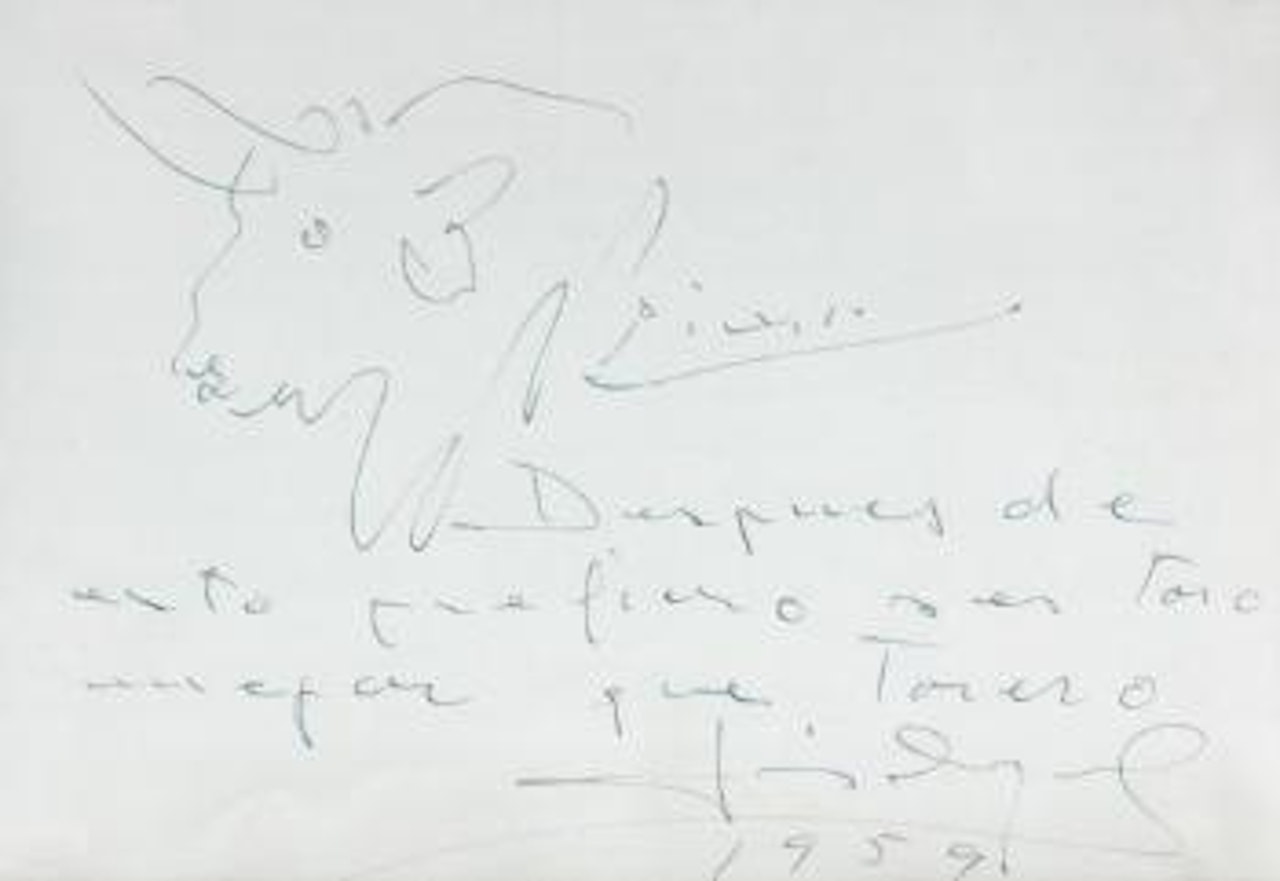 Picasso
Despues de
esto prefiero ser Toro
mejor que Torero
1959